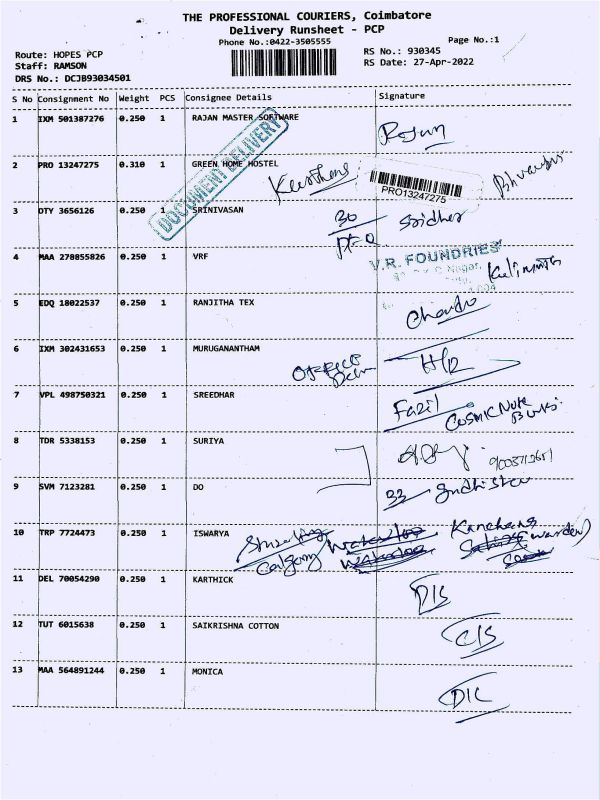 THE PROFESSIONAL COURIERS, Coimbatore
Delivery Runsheet - PCP
Phone No.:0422-3505555
Page No.:1
Route: HOPES PCP
Staff: RAMSON
DRS No.: DCJB93034501
RS No.: 930345
RS Date: 27-Apr-2022
S No Consignment No Weight PCS Consignee Details Signature
1 IXM 501387276 0.250 1 RAJAN MASTER SOFTWARE
Rajan
DOCUMENT DELIVERY
2 PRO 13247275 0.310 1 GREEN HOME HOSTEL
Keerthana
PRO13247275
3 DTY 3656126 0.250 1 SRINIVASAN
30
Sridher
4 MAA 278855826 0.250 1 VRF
V.R. FOUNDRIES
Nagar,
5 EDQ 18022537 0.250 1 RANJITHA TEX
6 IXM 302431653 0.250 1 MURUGANANTHAM
OFFICE
7 VPL 498750321 0.250 1 SREEDHAR
Fazil
COSMIC Note
8 TDR 5338153 0.250 1 SURIYA
9 SVM 7123281 0.250 1 DO
33
10 TRP 7724473 0.250 1 ISWARYA
Kanchana
(warden)
11 DEL 70054290 0.250 1 KARTHICK
D/S
12 TUT 6015638 0.250 1 SAIKRISHNA COTTON
C/S
13 MAA 564891244 0.250 1 MONICA